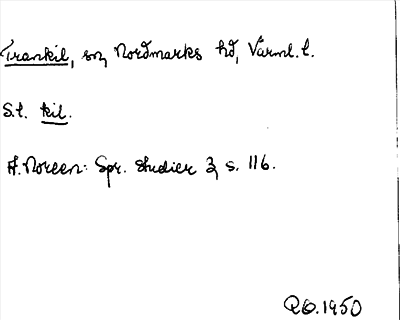 Trankil, sn, Nordmarks hd, Värml. l.
S.l. kil.
A. Noreen: Spr. studier 3, s. 116.
1950